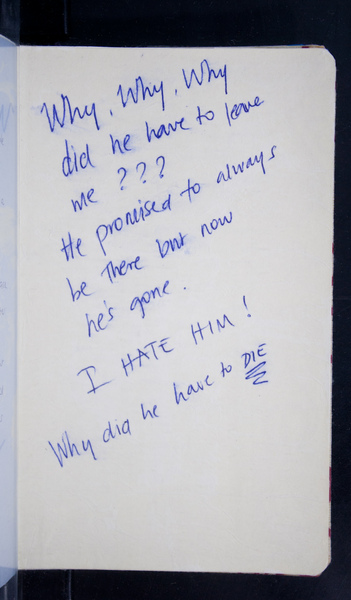 Why, Why, Why
did he have to leave
me ???
He promised to always
be There but now
he's gone.
I HATE HIM!
Why did he have to DIE